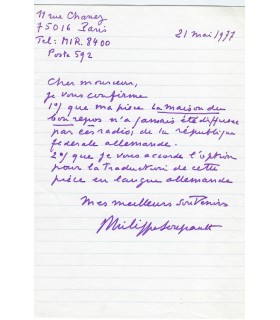 11 rue Chanez
75016 Paris
Tel: MIR. 8400
Poste 592
21 mai 1977
Cher monsieur,
je vous confirme
1°) que ma pièce La maison du
bon repos n'a jamais été diffusée
par les radios de la république
federale allemande.
2°) que je vous accorde l'option
pour la traduction de cette
pièce en langue allemande
Mes meilleurs souvenirs
Philippe Soupault